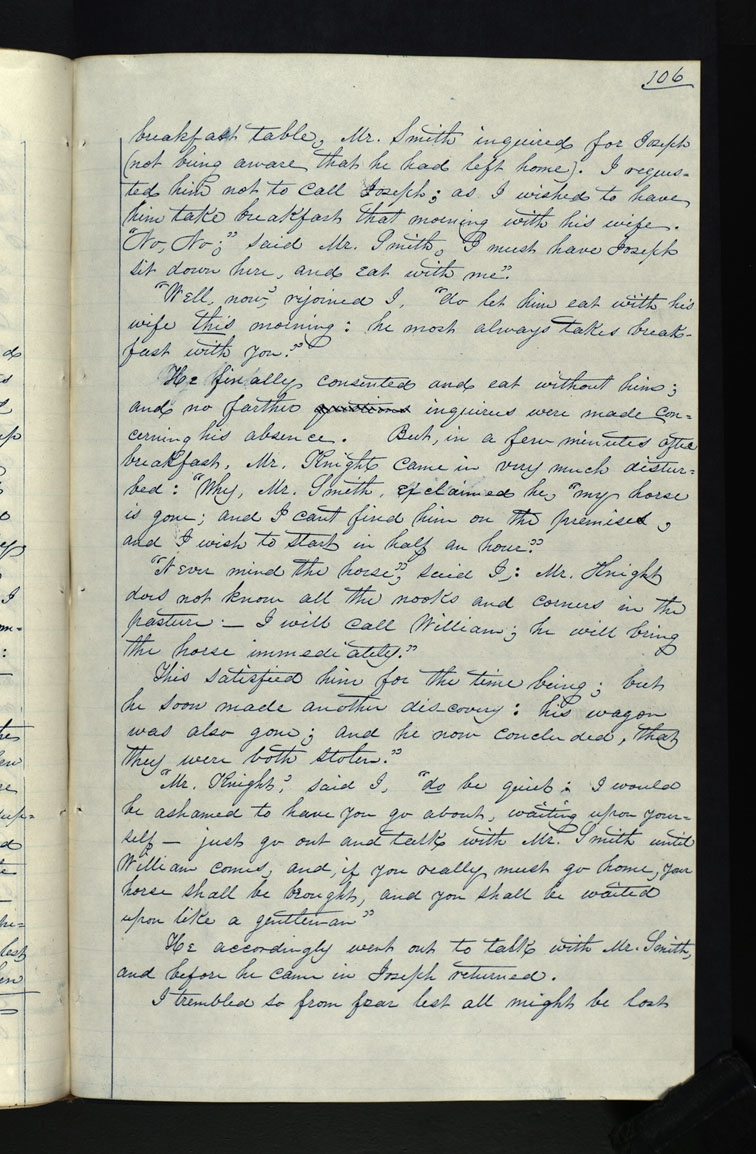 106
breakfast table, Mr. Smith inquired for Joseph
(not being aware that he had left home). I reques=
ted him not to call Joseph; as I wished to have
him take breakfast that morning with his wife.
"No, No;" said Mr. Smith, I must have Joseph
sit down here, and eat with me".
"Well, now," rejoined I, "do let him eat with his
wife this morning: he most always takes break-
fast with you."
He finally consented and eat without him;
and no farther questions inquiries were made con=
cerning his absence. But, in a few minutes after
breakfast, Mr. Knight came in very much distur=
bed: "Why, Mr. Smith, exclaimed he, "my horse
is gone; and I cant find him on the premises,
and I wish to start in half an hour."
"Never mind the horse," said I,: Mr. Knight
does not know all the nooks and corners in the
pasture — I will call William; he will bring
the horse immediately."
This satisfied him for the time being; but
he soon made another discovery: his wagon
was also gone; and he now concluded, that
they were both stolen."
"Mr. Knight," said I, "do be quiet; I would
be ashamed to have you go about, waiting upon your=
self — just go out and talk with Mr. Smith until
William comes, and, if you really must go home, your
horse shall be brought, and you shall be waited
upon like a gentleman"
He accordingly went out to talk with Mr. Smith,
and before he came in Joseph returned.
I trembled so from fear lest all might be lost